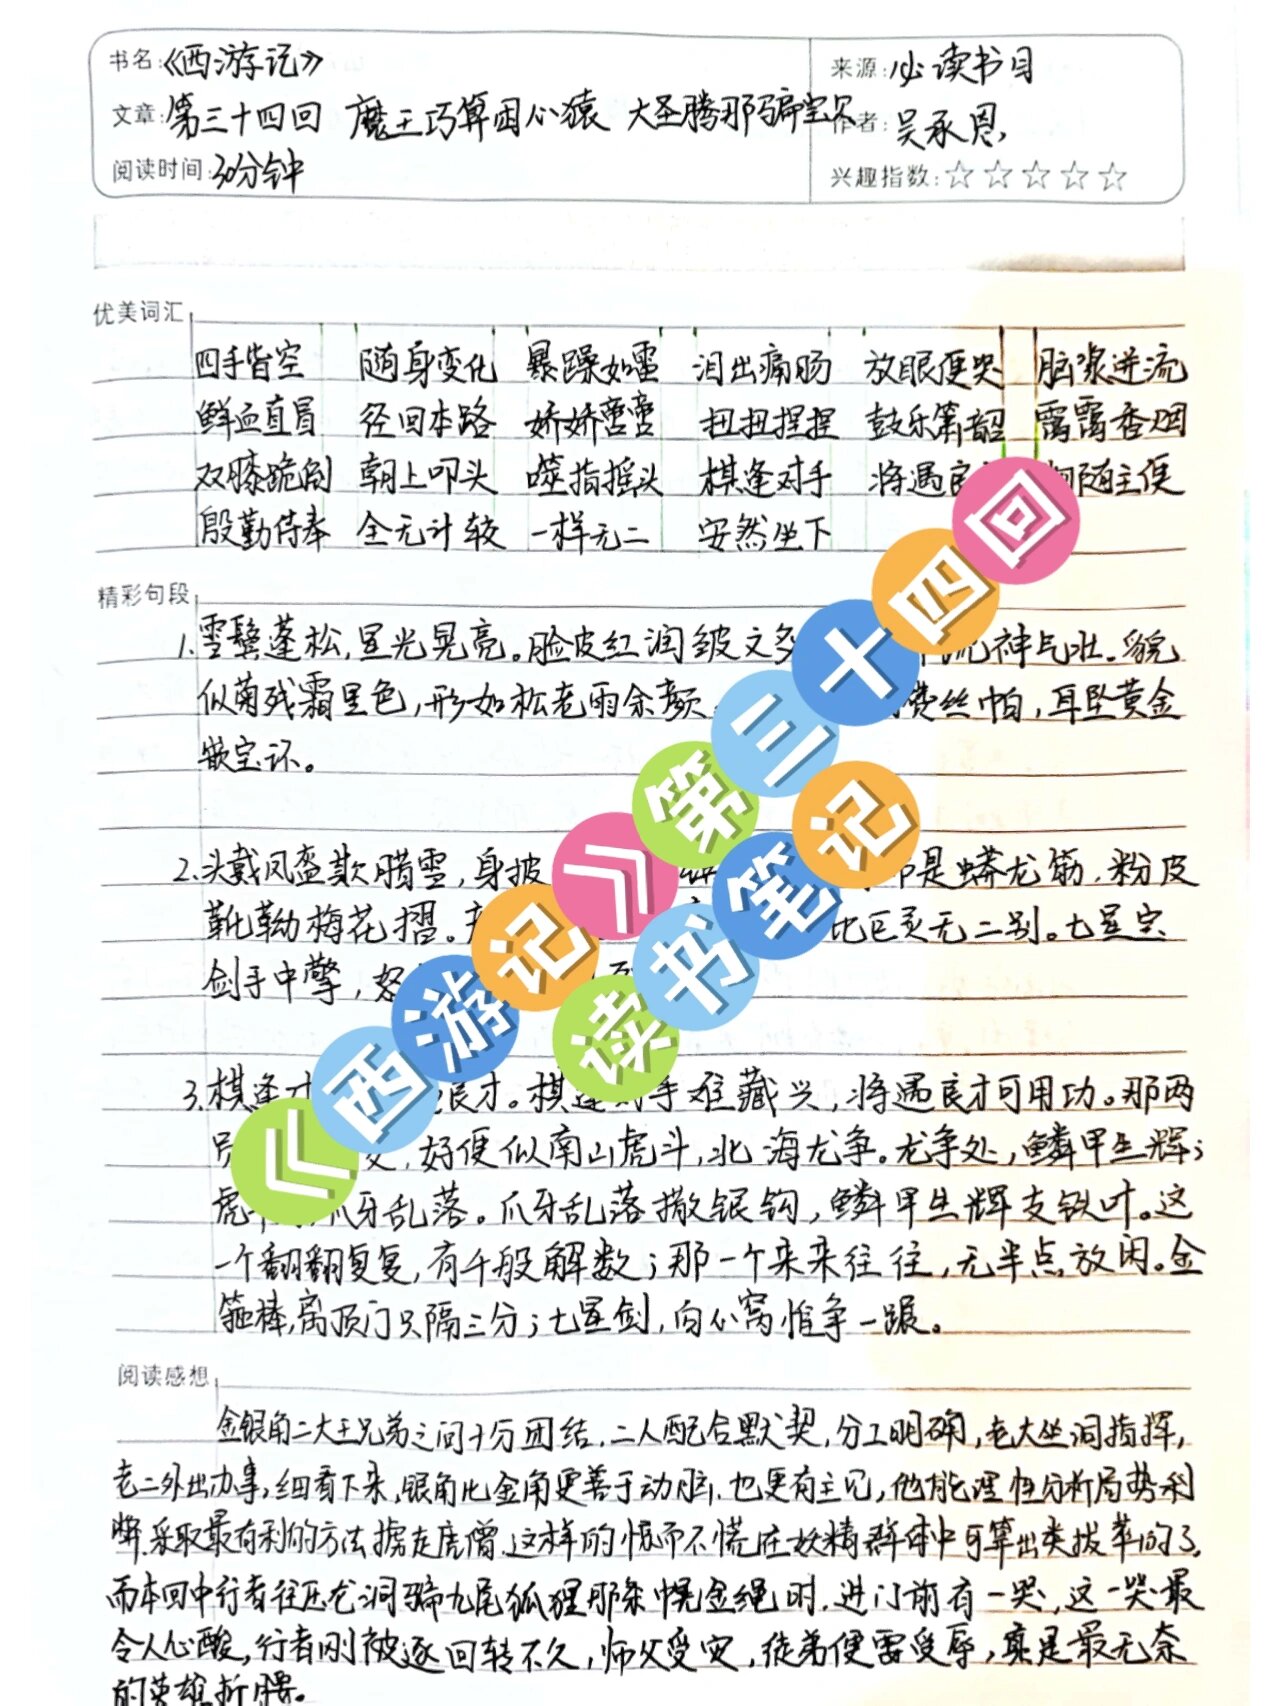 书名:《西游记》
来源:必读书目
文章:第三十四回 魔王巧算困心猿 大圣腾那骗宝贝
作者:吴承恩
阅读时间:30分钟
兴趣指数:☆☆☆☆☆
优美词汇
四手皆空 随身变化 暴躁如雷 泪出痛肠 放眼便哭 脑浆迸流
鲜血直冒 径回本路 娇娇啻啻 扭扭捏捏 鼓乐箫韶 霭霭香烟
双膝跪倒 朝上叩头 噬指摇头 棋逢对手 将遇良 随主便
殷勤侍奉 全无计较 一样无二 安然坐下
精彩句段
1.雪鬓蓬松,星光晃亮。脸皮红润皱文多 神气壮。貌
似菊残霜里色,形如松老雨余颜。 丝帕,耳坠黄金
嵌宝环。
2.头戴凤盔欺腊雪,身披 是蟒龙筋,粉皮
靴靿梅花摺。 比巨灵无二别。七星宝
剑手中擎,怒
3.棋逢 良才。棋逢对手难藏兴,将遇良才可用功。那两
好便似南山虎斗,北海龙争。龙争处,鳞甲生辉;
虎 爪牙乱落。爪牙乱落撒银钩,鳞甲生辉支铁叶。这
一个翻翻复复,有千般解数;那一个来来往往,无半点放闲。金
箍棒,离顶门只隔三分;七星剑,向心窝惟争一蹍。
阅读感想
金银角二大王兄弟之间十分团结,二人配合默契,分工明确,老大坐洞指挥,
老二外出办事,细看下来,银角比金角更善于动脑,也更有主见,他能理性分析局势利
弊,采取最有利的方法掳走唐僧,这样的惊而不慌在妖精群体中可算出类拔萃的了。
而本回中行者往压龙洞骗九尾狐狸那条幌金绳时,进门前有一哭,这一哭最
令人心酸,行者刚被逐回转不久,师父受灾,徒弟便需受辱,真是最无奈
的英雄折腰。
《西游记》第三十四回
读书笔记